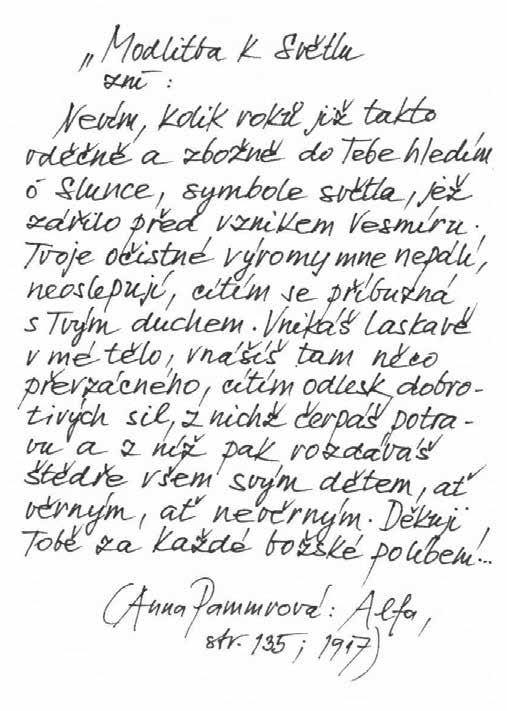 „Modlitba k Světlu
zní :
Nevím, kolik roků již takto
vděčně a zbožně do Tebe hledím
ó Slunce, symbole světla, jež
zářilo před vznikem Vesmíru.
Tvoje očistné výromy mne nepálí,
neoslepují, cítím se příbuzná
s Tvým duchem. Vnikáš laskavě
v mé tělo, vnášíš tam něco
převzácného, cítím odlesk dobro-
tivých sil, z nichž čerpáš potra-
vu a z níž pak rozdáváš
štědře všem svým dětem, ať
věrným, ať nevěrným. Děkuji
Tobě za každé božské políbení...
(Anna Pammrová: Alfa,
str. 135; 1917)